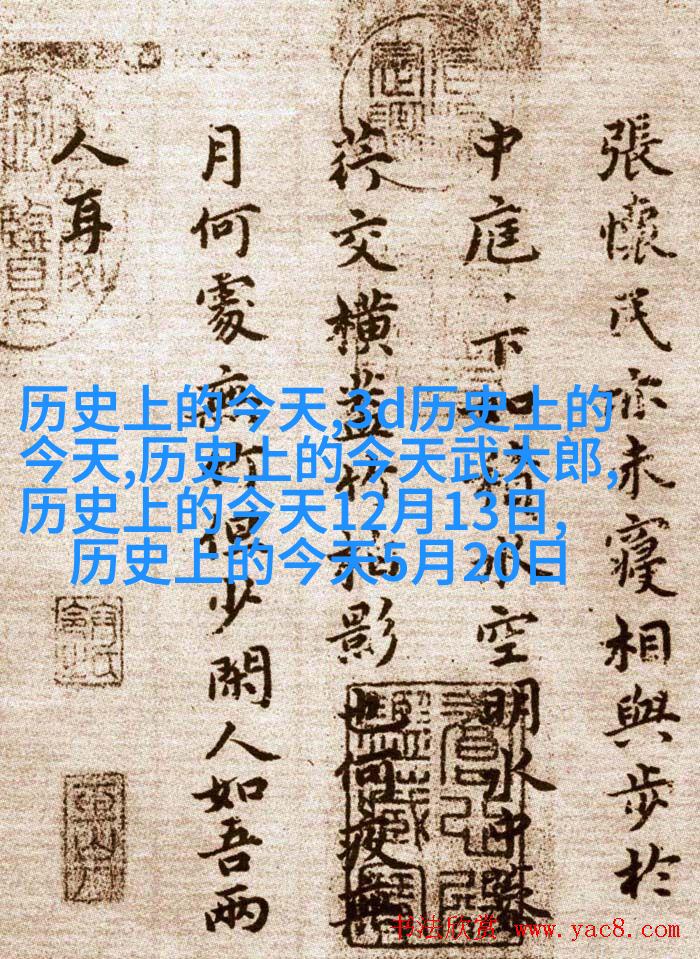 張懷民亦未寢相與步於
中庭、下如積水空明水中藻
荇交橫蓋竹柏影也何夜無
月何處無但少閑人如吾兩
人耳
历史上的今天,3d历史上的
今天,历史上的今天武大郎,
历史上的今天12月13日,
历史上的今天5月20日
书法欣赏 www.yac8.com